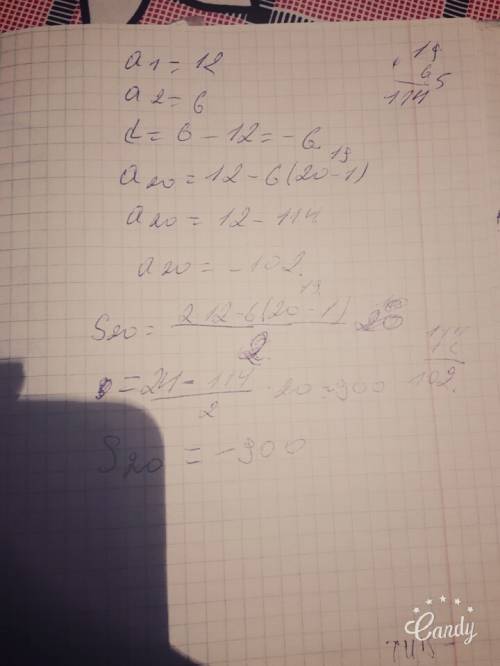 a1 = 12
a2 = 6
d = 6 - 12 = -6
19
a20 = 12 - 6(20-1)
a20 = 12 - 114
a20 = -102.
19
S20 = 2·12-6(20-1) / 2 · 20
= 24 - 114 / 2 · 20 = 900
S20 = -900
19
6
114
5
102.
Candy